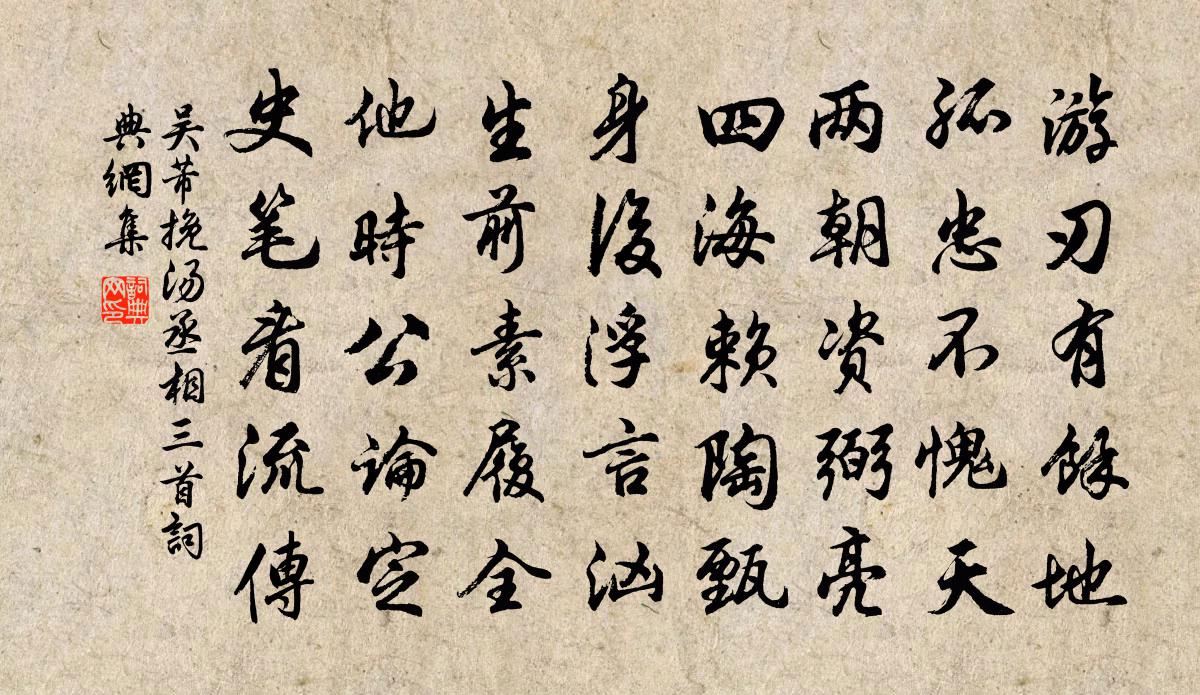 游刃有馀地
孤忠不愧天
两朝资弼亮
四海赖陶甄
身後浮言汹
生前素履全
他時公論定
史笔看流傳
吴芾挽汤丞相三首詞
典網集
詞典
网印